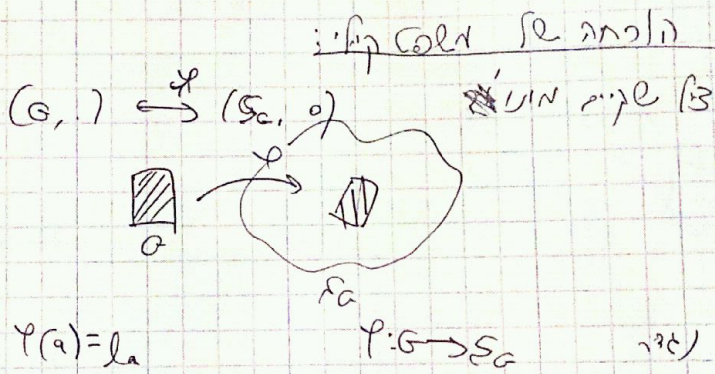 הוכחה של משפט קיילי:
צ"ל שקיים מונו'
(G, ·) ⟷ φ (S_G, ∘)
φ
G
S_G
נגדיר φ: G → S_G φ(a) = l_a